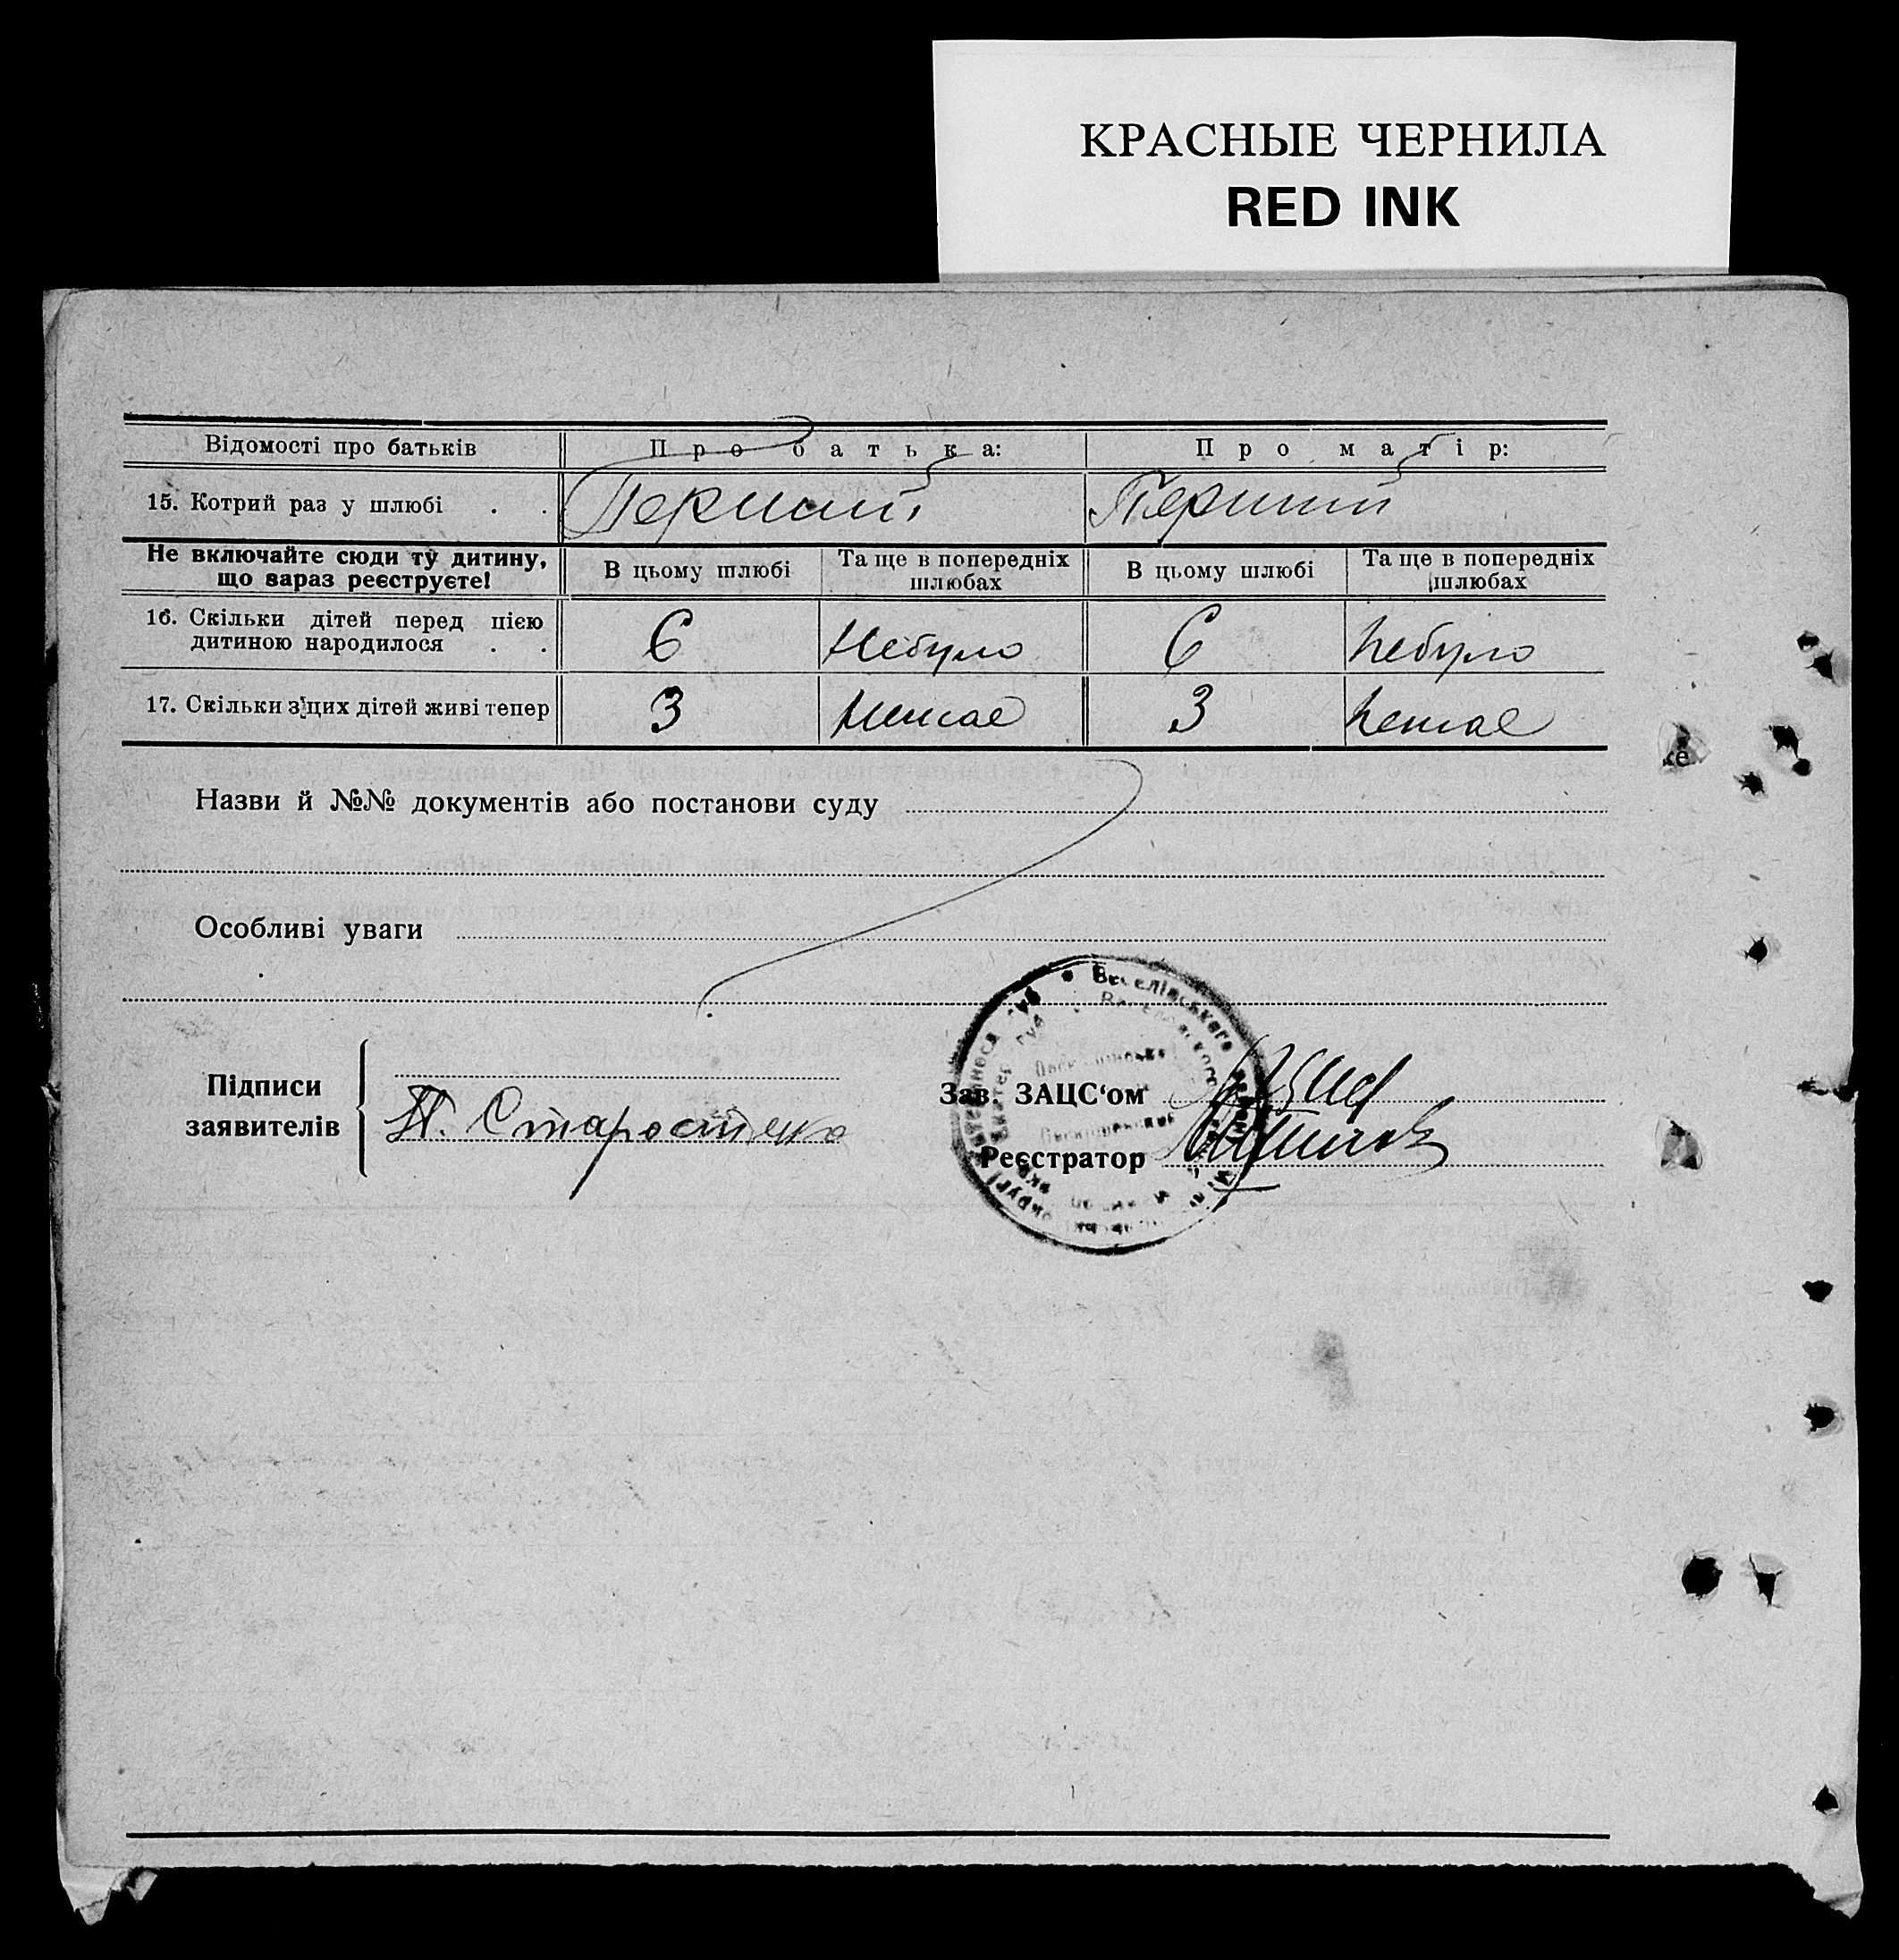 КРАСНЫЕ ЧЕРНИЛА
RED INK
Відомості про батьків Про батька: Про матір:
15. Котрий раз у шлюбі . . Перший Перший
Не включайте сюди ту дитину, що зараз реєструєте! В цьому шлюбі Та ще в попередніх шлюбах В цьому шлюбі Та ще в попередніх шлюбах
16. Скільки дітей перед цією дитиною народилося . . 6 Небуло 6 Небуло
17. Скільки з цих дітей живі тепер 3 Немає 3 Немає
Назви й №№ документів або постанови суду
Особливі уваги
Підписи заявителів
П. Старостенко
Веселівського
Зав. ЗАЦС‘ом
Реєстратор